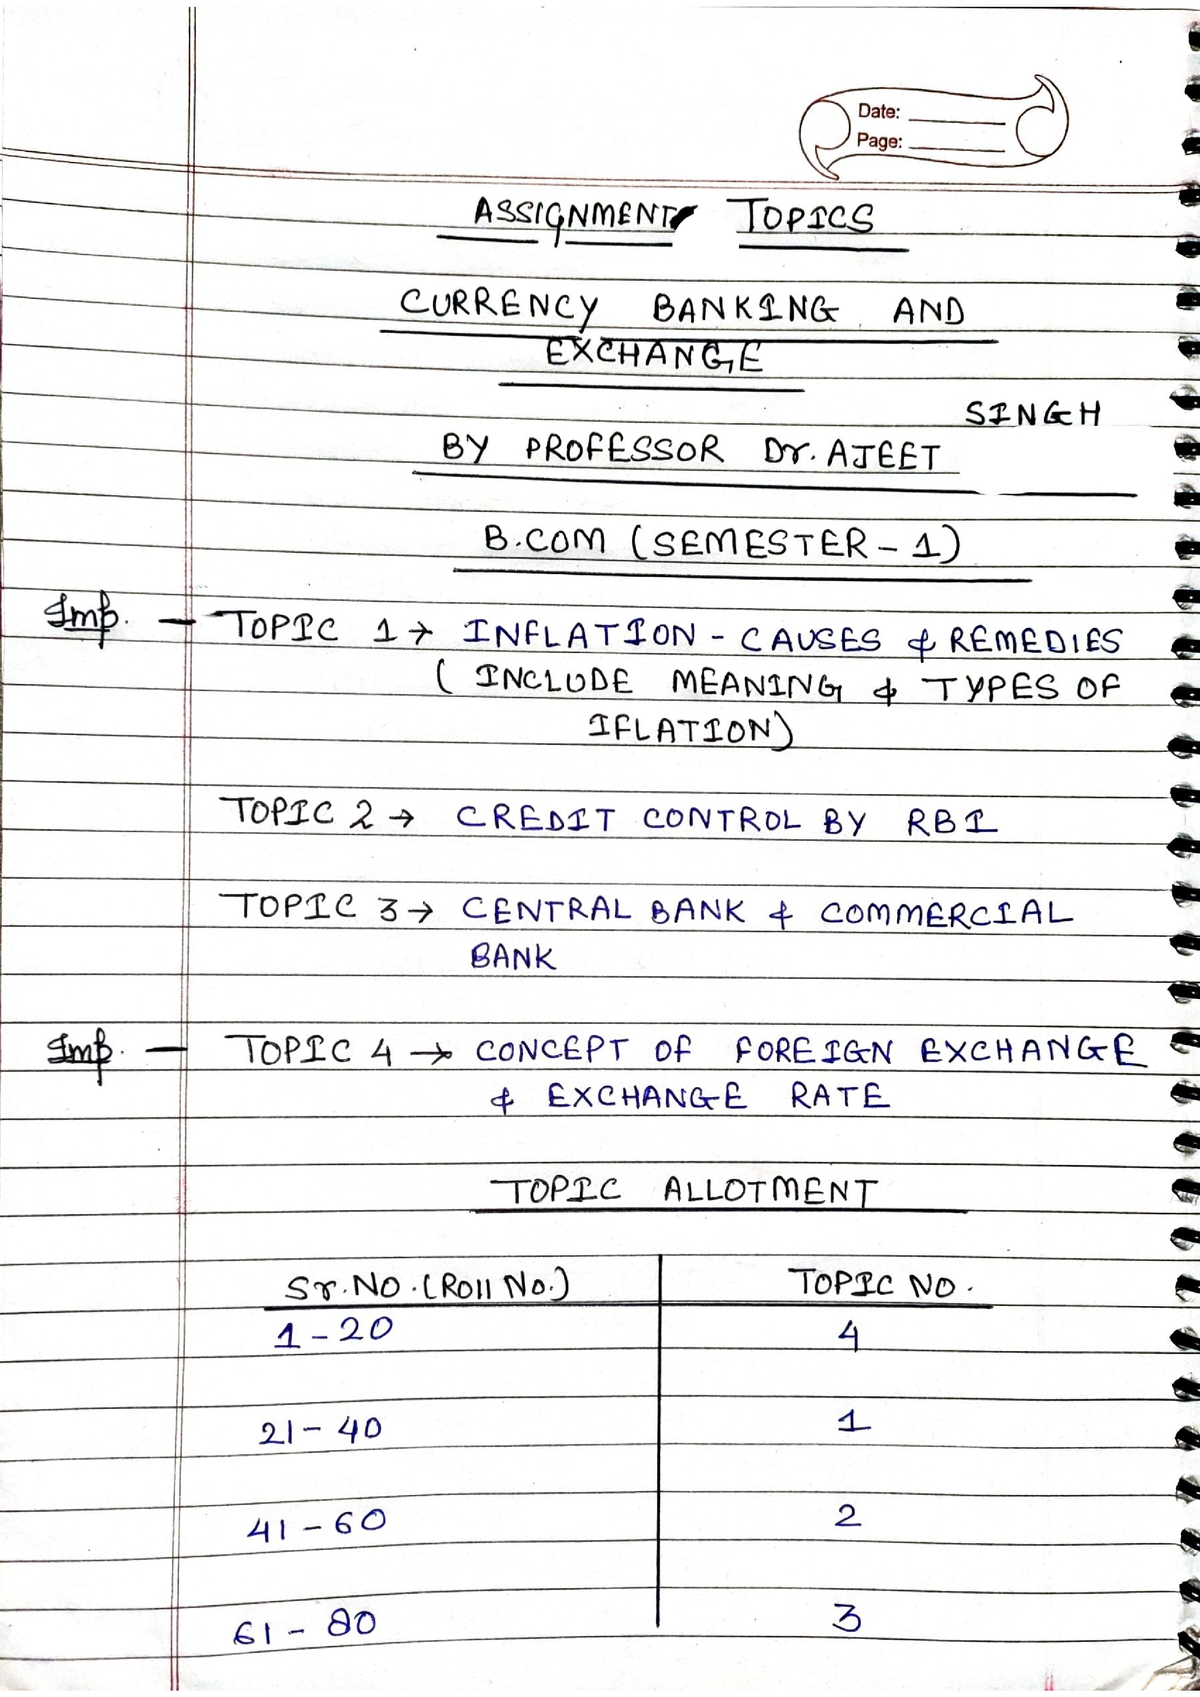 Date:
Page:
ASSIGNMENT TOPICS
CURRENCY BANKING AND
EXCHANGE
SINGH
BY PROFESSOR Dr. AJEET
B.COM (SEMESTER - 1)
Imp. - TOPIC 1 → INFLATION - CAUSES & REMEDIES
( INCLUDE MEANING & TYPES OF
IFLATION)
TOPIC 2 → CREDIT CONTROL BY RBI
TOPIC 3 → CENTRAL BANK & COMMERCIAL
BANK
Imp. - TOPIC 4 → CONCEPT OF FOREIGN EXCHANGE
& EXCHANGE RATE
TOPIC ALLOTMENT
Sr. NO. (Roll No.) TOPIC NO.
1 - 20 4
21 - 40 1
41 - 60 2
61 - 80 3